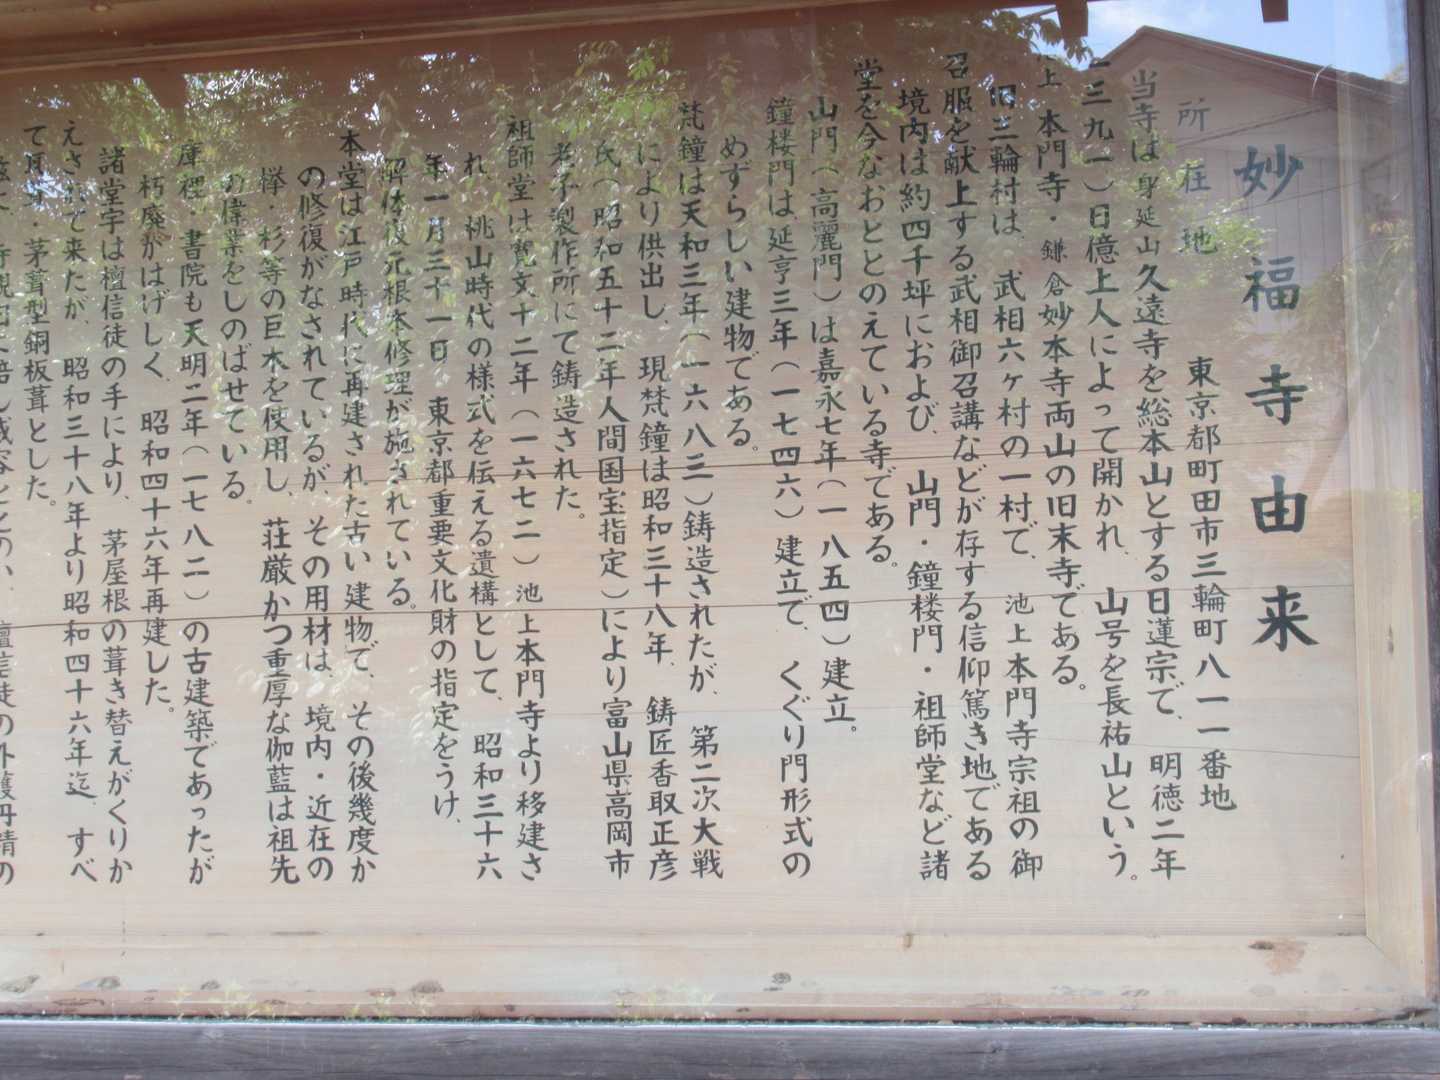 妙福寺由来
所在地　東京都町田市三輪町八一一番地
当寺は身延山久遠寺を総本山とする日蓮宗で、明徳二年
三九一）日億上人によって開かれ、山号を長祐山という。
上本門寺・鎌倉妙本寺両山の旧末寺である。
旧三輪村は、武相六ヶ村の一村で、池上本門寺宗祖の御
召服を献上する武相御召講などが存する信仰篤き地である
境内は約四千坪におよび、山門・鐘楼門・祖師堂など諸
堂を今なおととのえている寺である。
山門（高麗門）は嘉永七年（一八五四）建立。
鐘楼門は延亨三年（一七四六）建立で、くぐり門形式の
めずらしい建物である。
梵鐘は天和三年（一六八三）鋳造されたが、第二次大戦
により供出し、現梵鐘は昭和三十八年、鋳匠香取正彦
氏（昭和五十二年人間国宝指定）により富山県高岡市
老子製作所にて鋳造された。
祖師堂は寛文十二年（一六七二）池上本門寺より移建さ
れ、桃山時代の様式を伝える遺構として、昭和三十六
年一月三十一日、東京都重要文化財の指定をうけ、
解体復元根本修理が施されている。
本堂は江戸時代に再建された古い建物で、その後幾度か
の修復がなされているが、その用材は、境内・近在の
欅・杉等の巨木を使用し、荘厳かつ重厚な伽藍は祖先
の偉業をしのばせている。
庫裡・書院も天明二年（一七八二）の古建築であったが
朽廃がはげしく、昭和四十六年再建した。
諸堂宇は檀信徒の手により、茅屋根の葺き替えがくりか
えされて来たが、昭和三十八年より昭和四十六年迄、すべ
て・茅葺型銅板葺とした。
檀信徒の外護丹精の